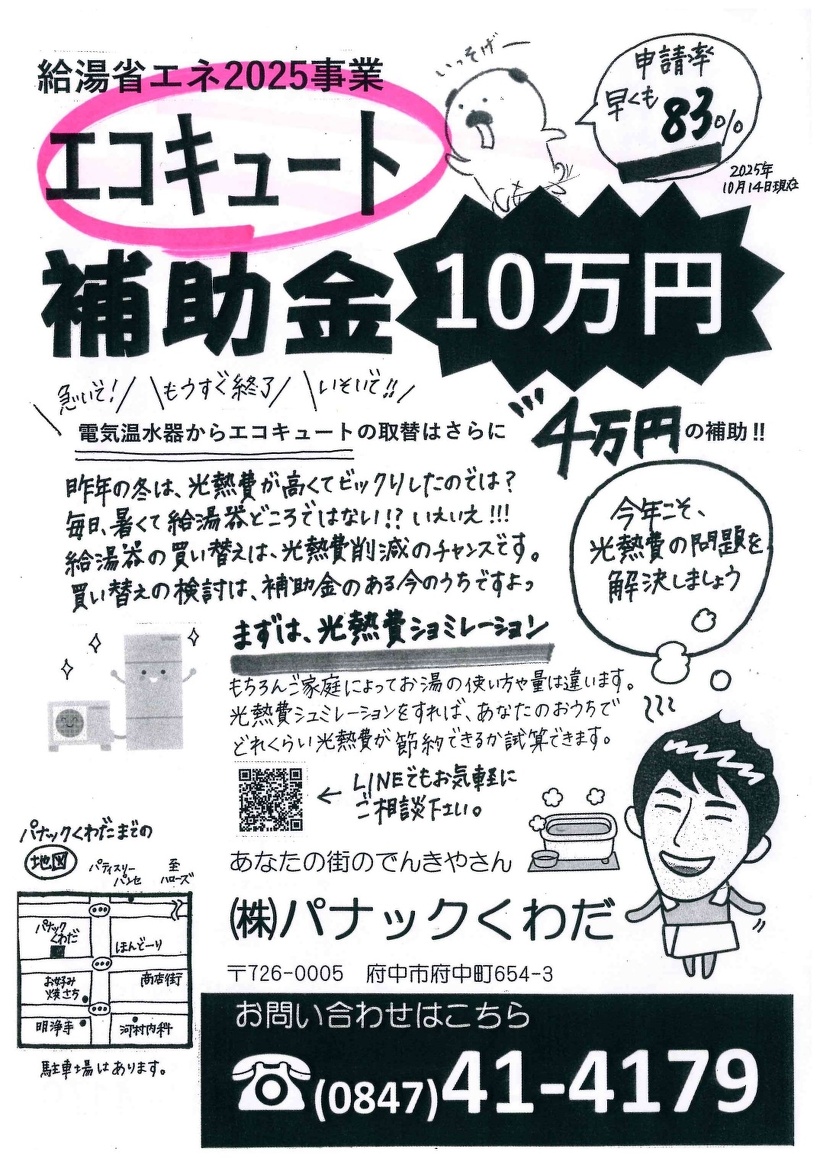 給湯省エネ2025事業
いっそげー
申請率
早くも
83%
2025年
10月14日現在
エコキュート
補助金
10万円
急いで! もうすぐ終了 いそいで!!
電気温水器からエコキュートの取替はさらに
4万円の補助!!
昨年の冬は、光熱費が高くてビックリしたのでは?
毎日、暑くて給湯器どころではない!? いえいえ!!!
給湯器の買い替えは、光熱費削減のチャンスです。
買い替えの検討は、補助金のある今のうちですよっ
今年こそ、
光熱費の問題を
解決しましょう
まずは、光熱費ショミレーション
もちろんご家庭によってお湯の使い方や量は違います。
光熱費シュミレーションをすれば、あなたのおうちで
どれくらい光熱費が節約できるか試算できます。
← LINEでもお気軽に
ご相談下さい。
パナックくわだまでの
地図
パティスリー
パンセ
至
ハローズ
パナック
くわだ
ほんどーり
お好み
焼さち
商店街
明浄寺
河村内科
駐車場はあります。
あなたの街のでんきやさん
㈱パナックくわだ
〒726-0005 府中市府中町654-3
お問い合わせはこちら
☎(0847)41-4179